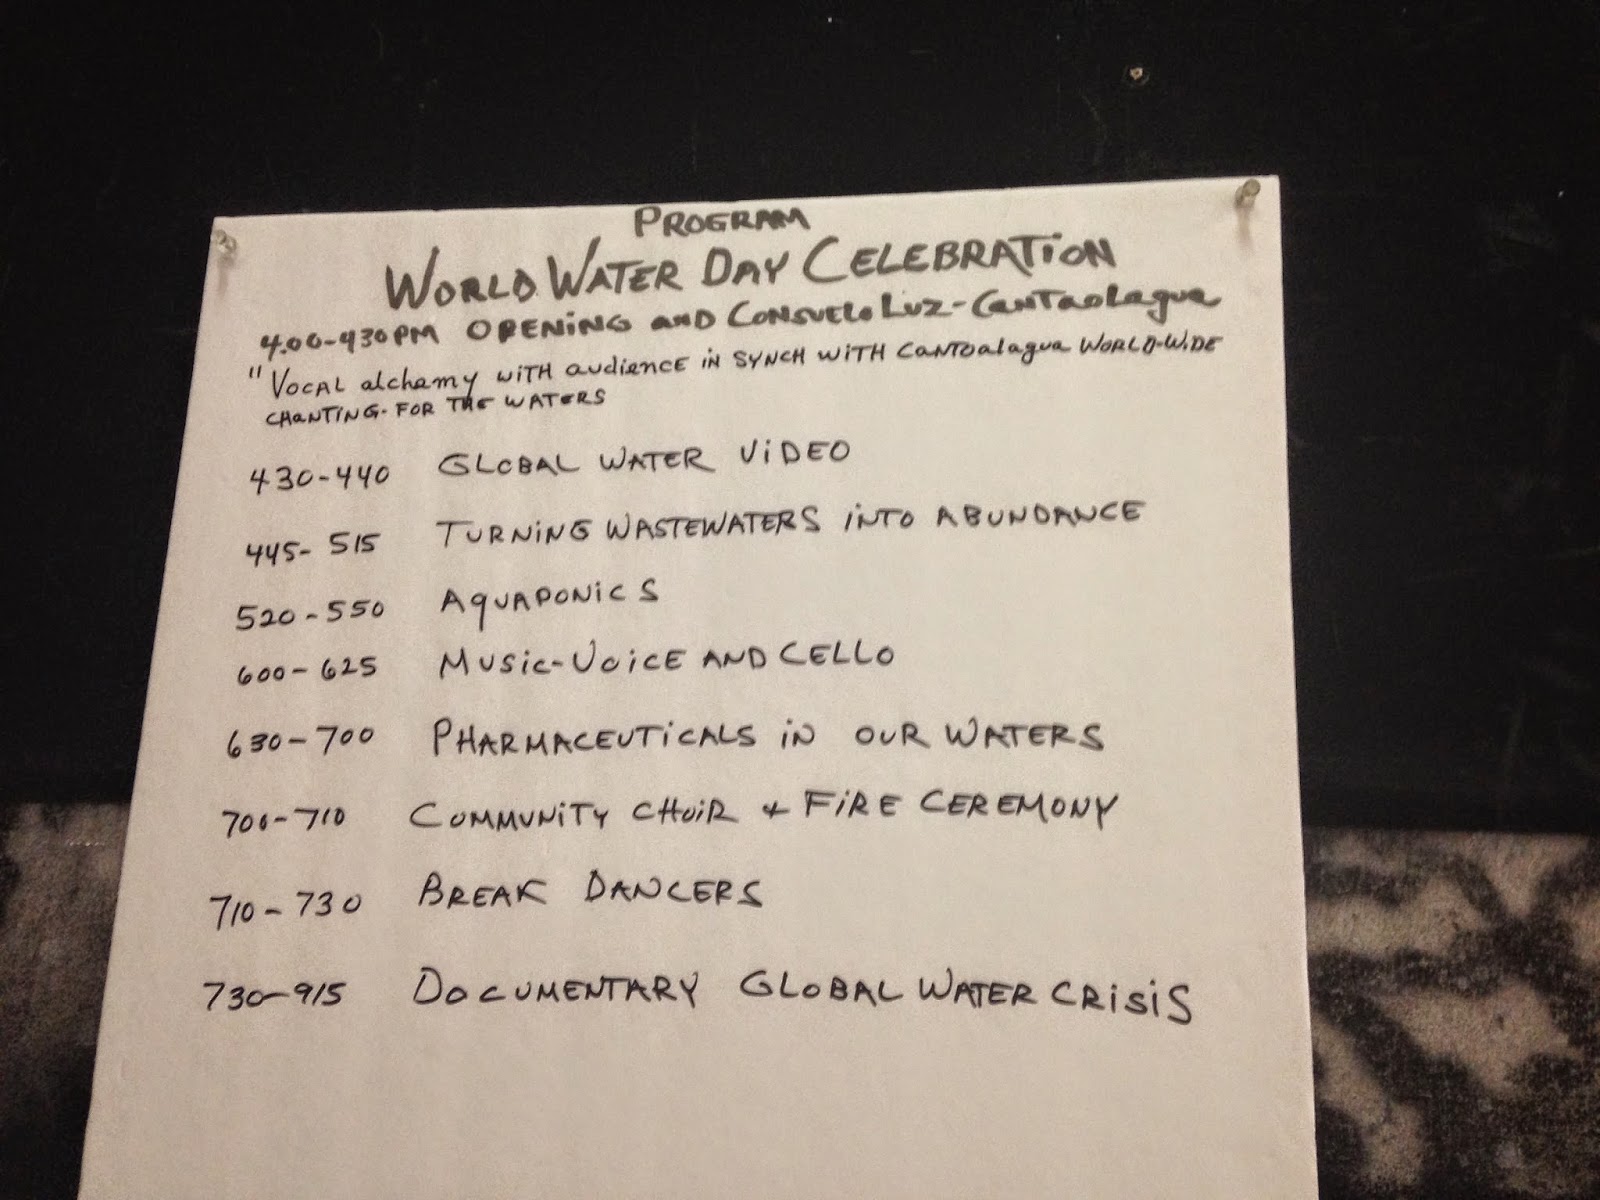 PROGRAM
WORLD WATER DAY CELEBRATION
4:00-430PM OPENING AND CONSUELO LUZ-CANTAOLAGUA
"VOCAL ALCHEMY WITH AUDIENCE IN SYNCH WITH CANTOALAGUA WORLD-WIDE
CHANTING-FOR THE WATERS
430-440 GLOBAL WATER VIDEO
445-515 TURNING WASTEWATERS INTO ABUNDANCE
520-550 AQUAPONICS
600-625 MUSIC-VOICE AND CELLO
630-700 PHARMACEUTICALS IN OUR WATERS
700-710 COMMUNITY CHOIR & FIRE CEREMONY
710-730 BREAK DANCERS
730-915 DOCUMENTARY GLOBAL WATER CRISIS